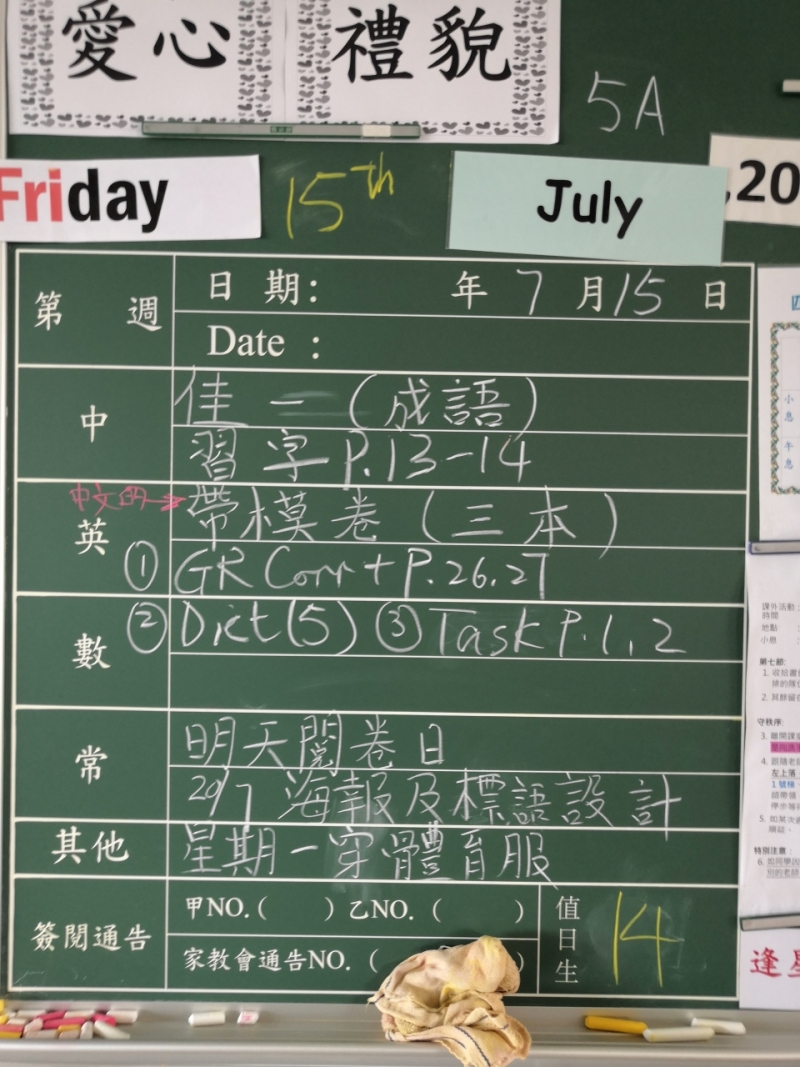 愛心 禮貌
5A
Friday 15th July ,20
第 週
日 期： 年 7 月 15 日
Date ：
中
佳一（成語）
習字P.13-14
中文的→帶模卷（三本）
英
① GR Corr + P.26,27
② Dict(5) ③ Task P.1,2
數
常
明天閱卷日
20/7 海報及標語設計
其他
星期一穿體育服
簽閱通告
甲NO.( ) 乙NO. ( )
家教會通告NO. ( )
值日生
14
小息
午息
課外活動：
時間
地點：
小息
第七節:
守秩序:
特別注意：
逢星